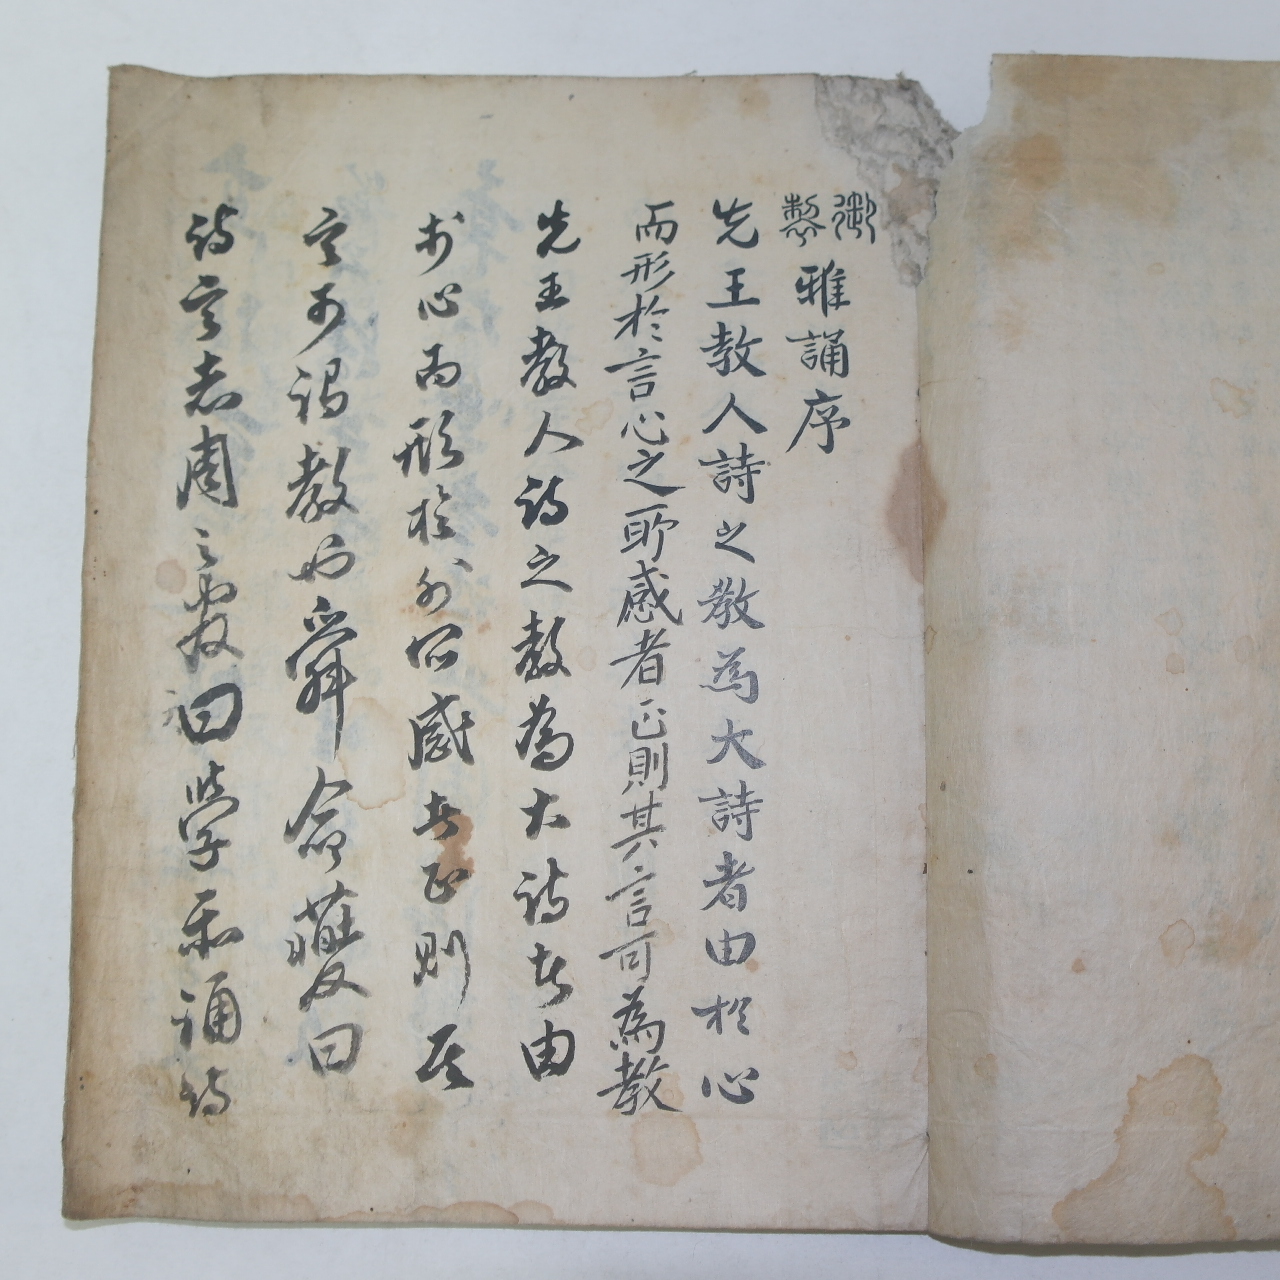 御製雅誦序
先王教人詩之教為大詩者由於心
而形於言心之所感者正則其言可為教
先王教人詩之教為大詩者由
於心而形於外所感者正則其
言可謂教也舜命夔曰
詩言志周之教曰學樂誦詩